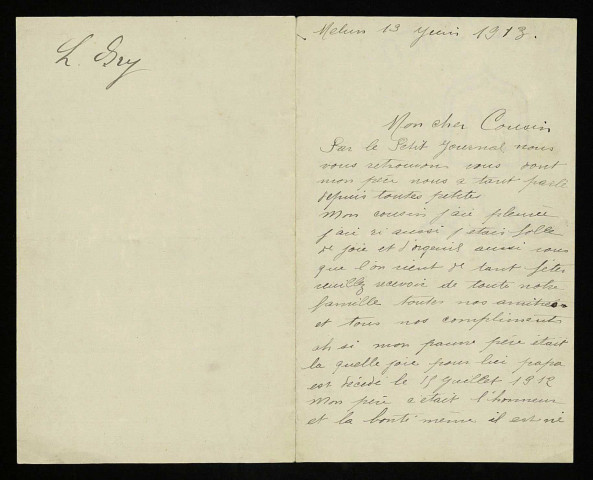 L. Gry
Melun 13 Juin 1913.
Mon cher Cousin
Par le Petit Journal nous
vous retrouvons vous dont
mon père nous a tant parlé
depuis toutes petites
Mon cousin j'aie pleurée
j'aie ri aussi j'étais folle
de joie et d'orgeuil aussi vous
que l'on vient de tant fêter
veuillez recevoir de toute notre
famille toutes nos amitiés
et tous nos compliments
ah si mon pauvre père était
la quelle joie pour lui papa
est décédé le 15 Juillet 1912
Mon père s'était l'honneur
et la bonté même il est né